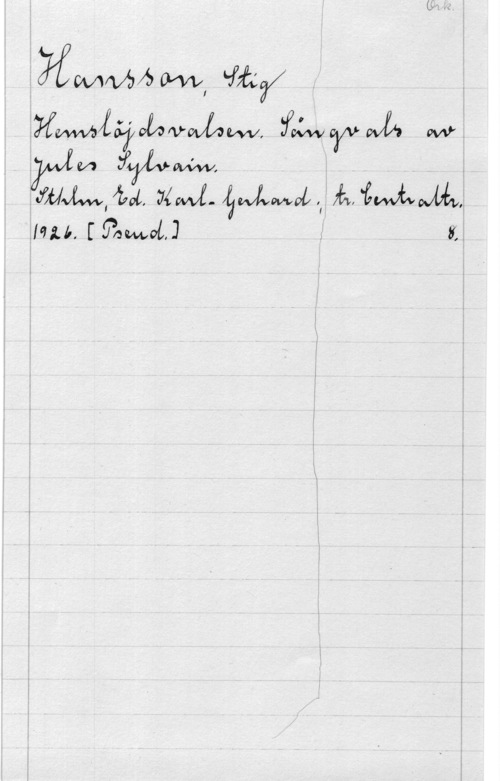 Ork.
Hansson, Stig
Hemslöjdsvalsen. Sångvals av
Jules Sylvain.
Sthlm, Ed. Karl-Gerhard; tr. Centraltr.
1926. [Pseud.] 8.